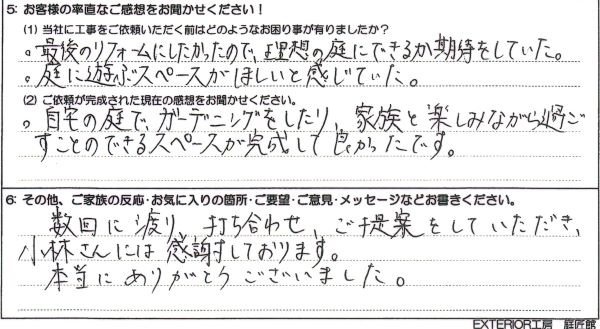 5: お客様の率直なご感想をお聞かせください！
(1) 当社に工事をご依頼いただく前はどのようなお困り事が有りましたか？
。最後のリフォームにしたかったので、理想の庭にできるか期待をしていた。
。庭に遊ぶスペースがほしいと感じていた。
(2) ご依頼が完成された現在の感想をお聞かせください。
。自宅の庭で、ガーデニングをしたり、家族と楽しみながら過ご
すことのできるスペースが完成して良かったです。
6: その他、ご家族の反応・お気に入りの箇所・ご要望・ご意見・メッセージなどお書きください。
数回に渡り、打ち合わせ、ご提案をしていただき、
小林さんには感謝しております。
本当にありがとうございました。
EXTERIOR工房 庭匠館